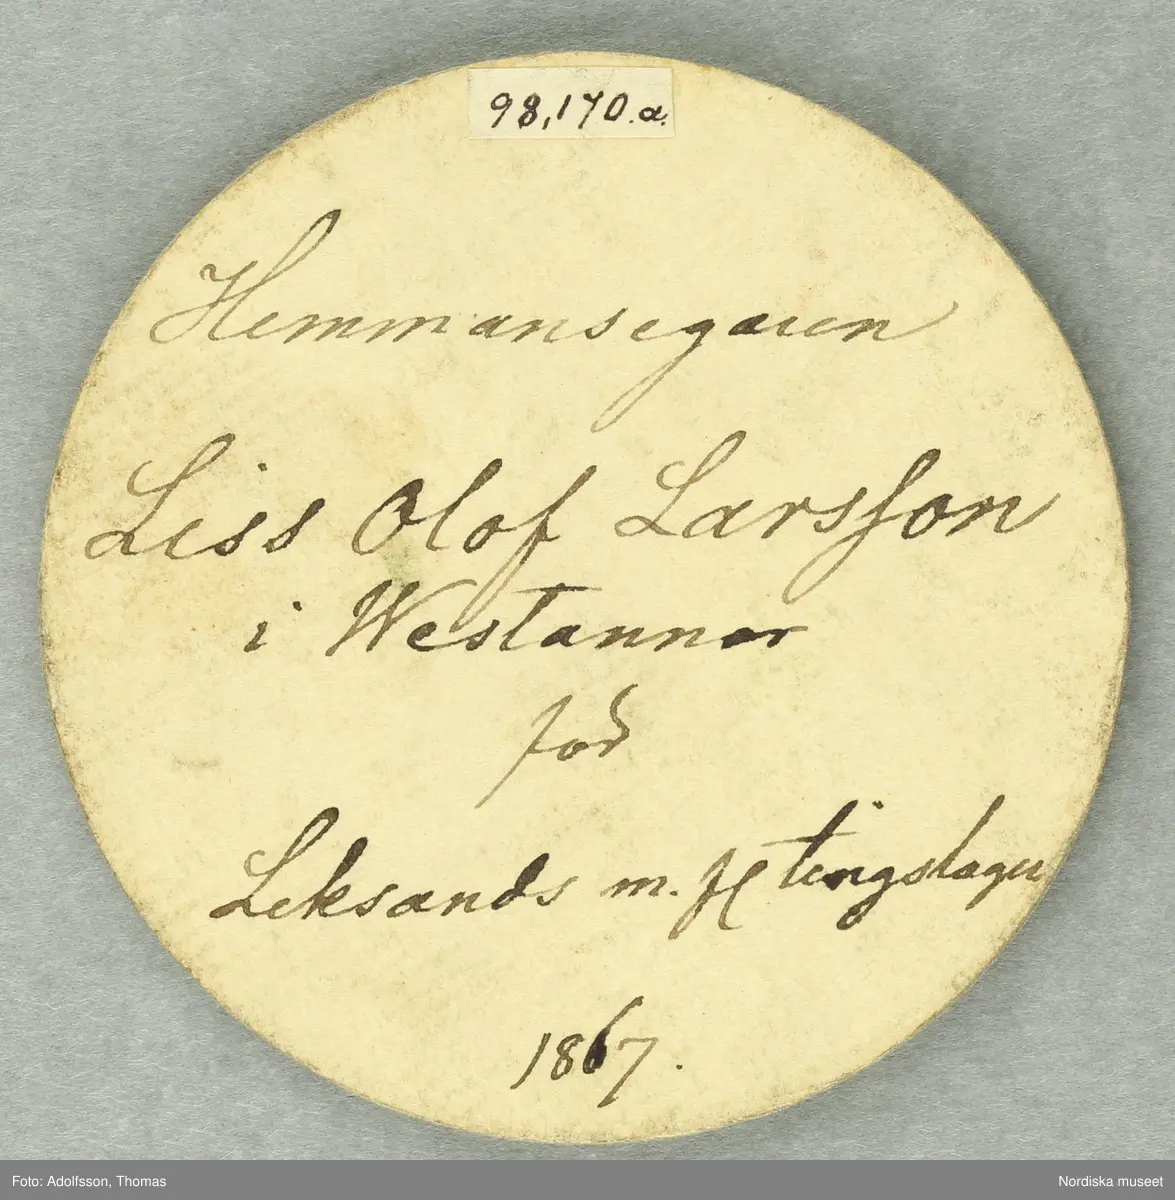 98,170.a.
Hemmansegaren
Liss Olof Larsson
i Westannor
för
Leksands m. fl tingslager
1867.
Foto: Adolfsson, Thomas
Nordiska museet